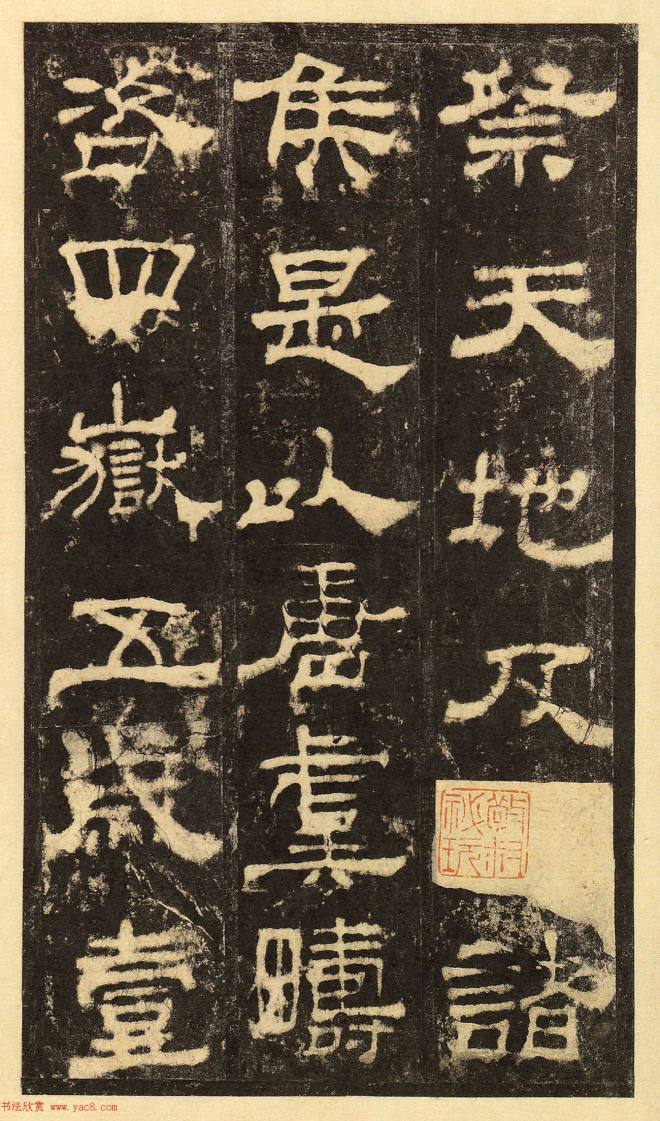 祭天地及諸
侯是以唐虞疇
咨四嶽五歲壹
书法欣赏 www.yac8.com